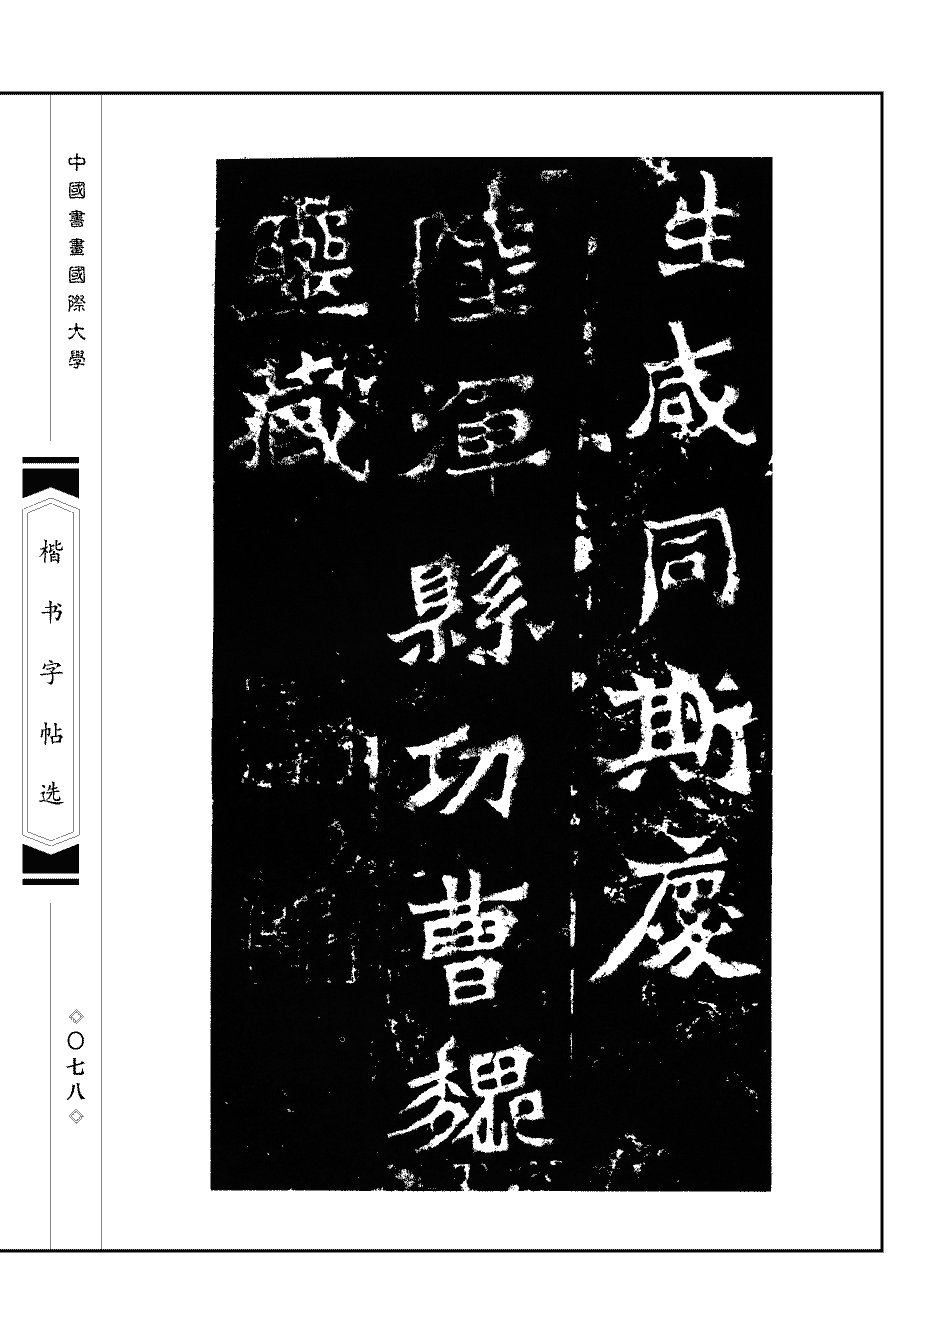 生咸同斯慶
陸渾縣功曹魏
靈藏
中國書畫國際大學
楷书字帖选
〇七八